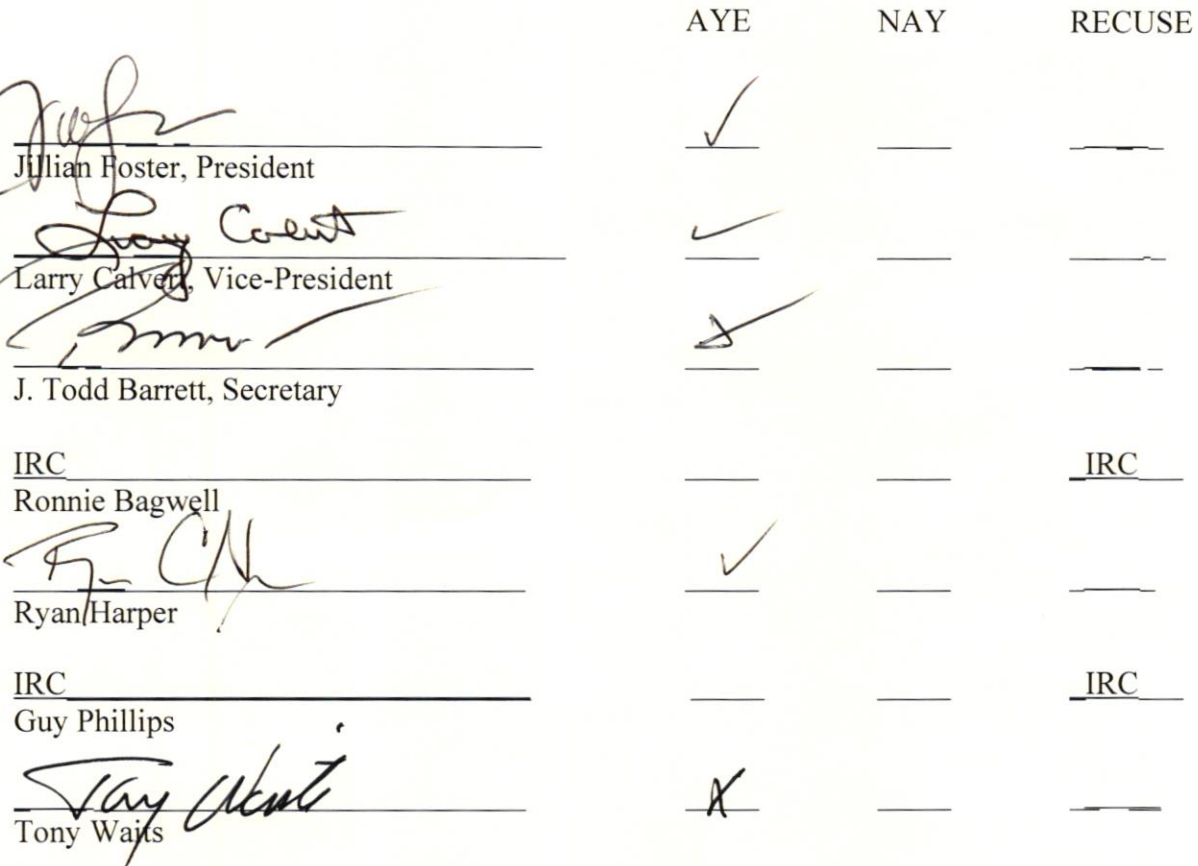 AYE NAY RECUSE
✓
Jillian Foster, President
Larry Calvert ✓
Larry Calvert, Vice-President
J. Todd Barrett, Secretary
IRC IRC
Ronnie Bagwell
✓
Ryan Harper
IRC IRC
Guy Phillips
Tony Waits X
Tony Waits